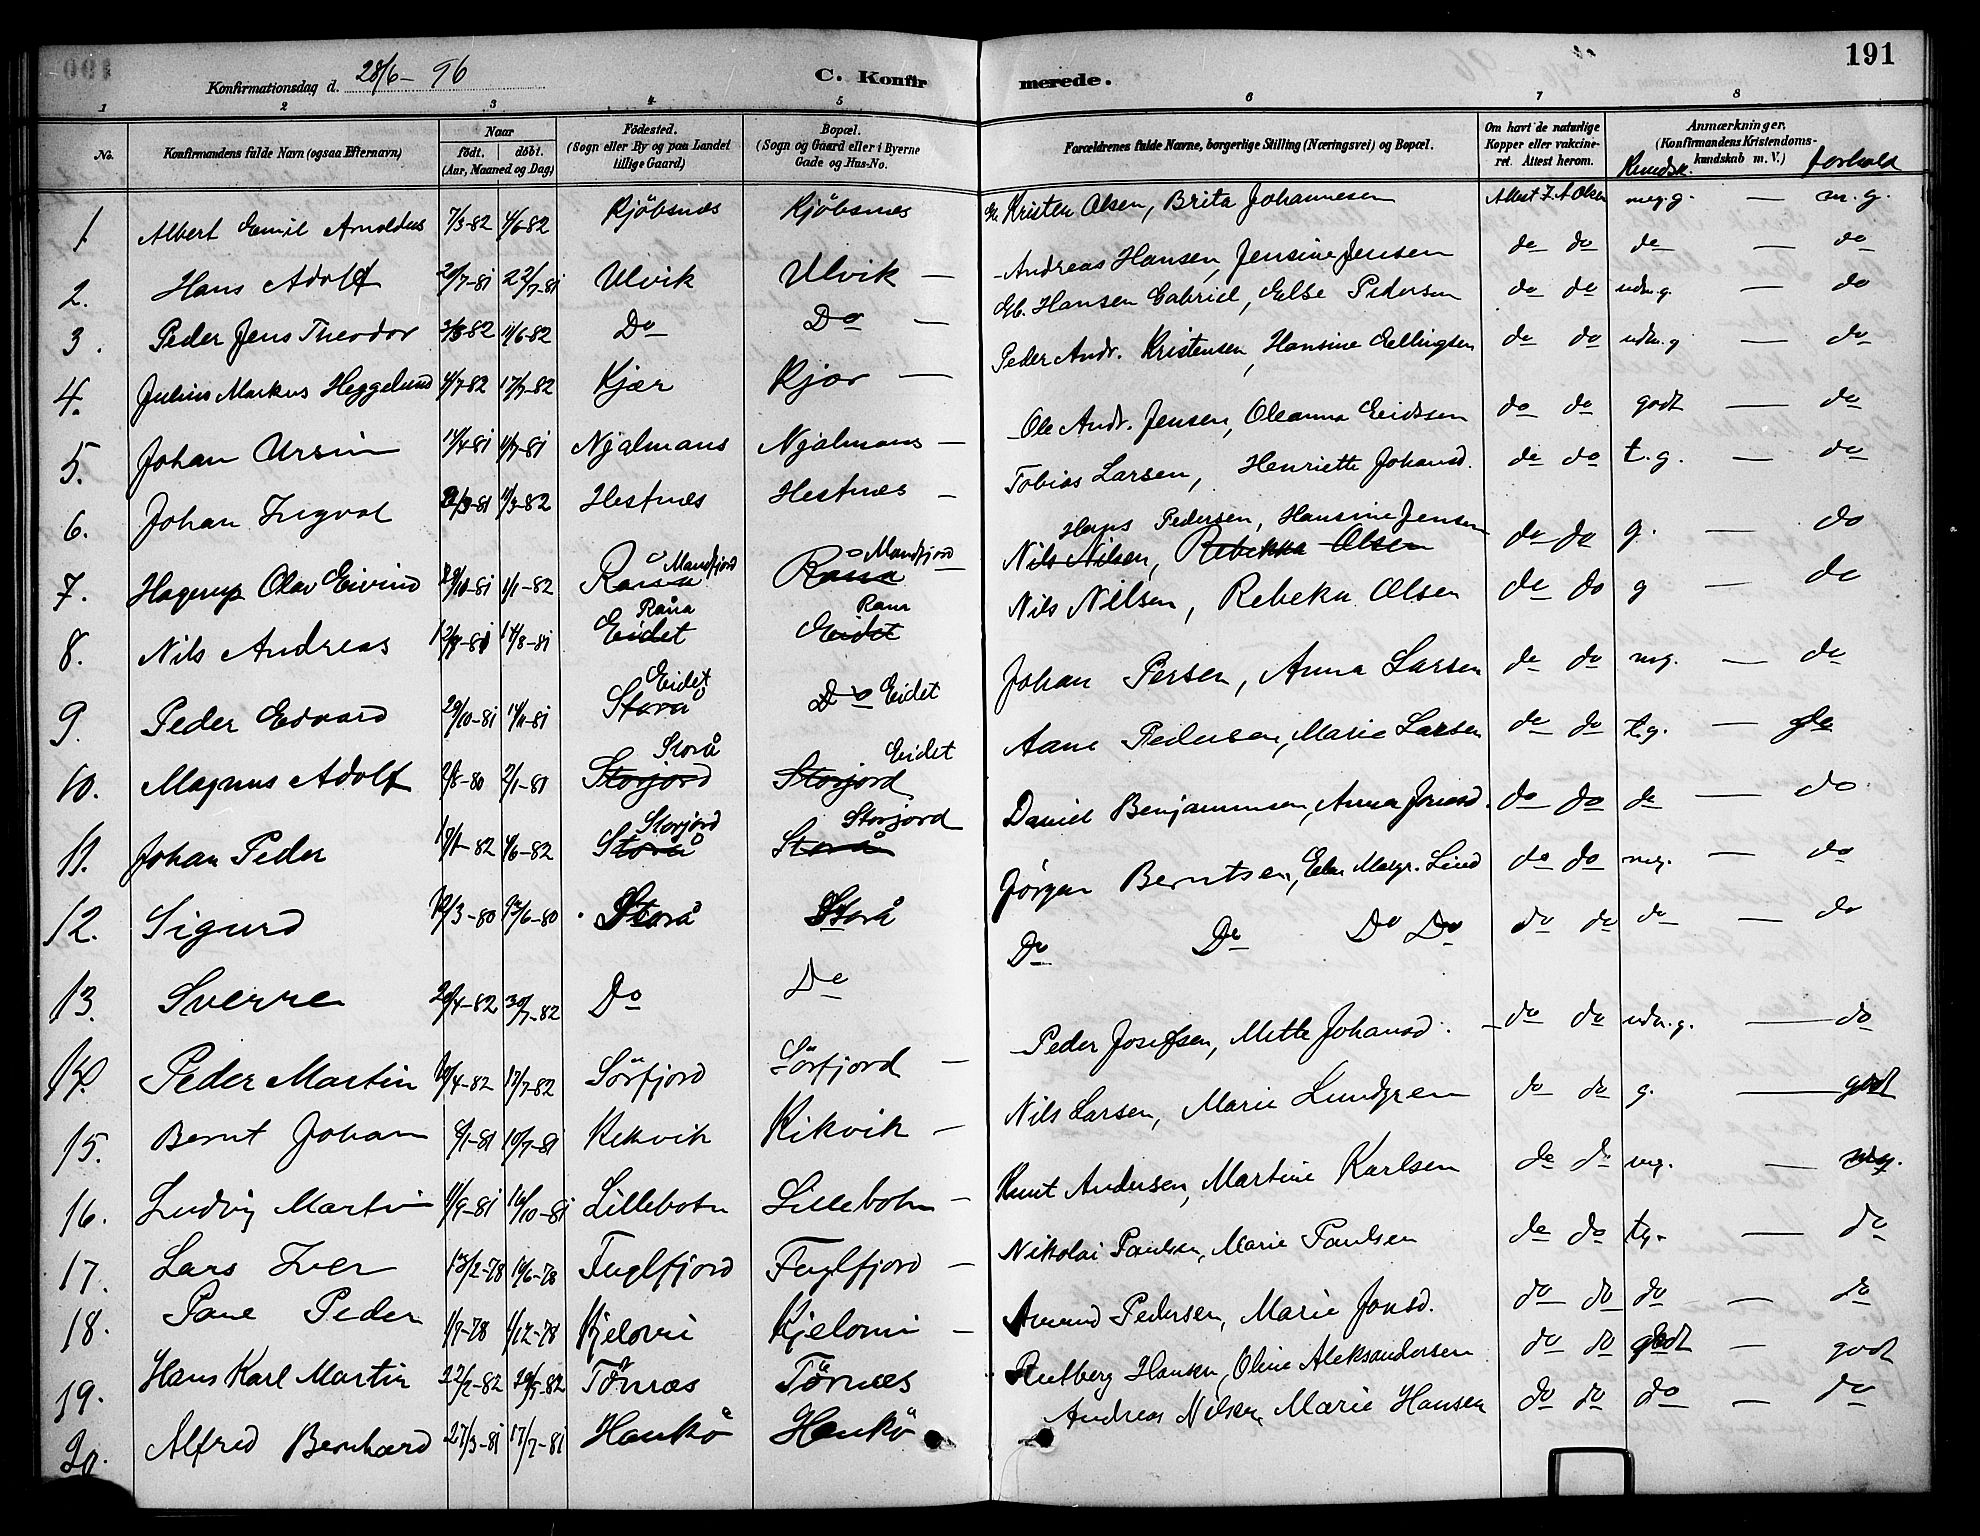 191
Konfirmationsdag d. 28/6 – 96 C. Konfirmerede.
1 2 3 4 5 6 7 8
No. Konfirmandens fulde Navn (ogsaa Efternavn) Naar født. døbt. (Aar, Maaned og Dag) Fødested. (Sogn eller By og paa Landet tillige Gaard) Bopæl. (Sogn og Gaard eller i Byerne Gade og Hus-No. Forældrenes fulde Navne, borgerlige Stilling (Næringsvei) og Bopæl. Om havt de naturlige Kopper eller vakcineret. Attest herom. Anmærkninger, (Konfirmandens Kristendomskundskab m. V.) Kundsk. forhold
1. Albert Emil Arnoldus 7/3-82 4/6-82 Kjöbsnes Kjöbsnes Kristen Olsen, Brita Johannesen Attest F. A. Olsen meg. g. — m. g.
2. Hans Adolf 20/7-81 22/7-81 Ulvik Ulvik — Andreas Hansen, Jensine Jensen do do do — do
3. Peder Jens Theodor 3/3-82 11/6-82 Do Do — Eb. Hansen Gabriel, Else Pedersen do do udm. g. — do
4. Julius Markus Heggelund 4/7-82 17/7-82 Kjær Kjær — Peder Andr. Kristensen, Hansine Ellingsen do do udm. g — do
5. Johan Ursin 14/4-81 Njalmans Njalmans — Ole Andr. Jensen, Oleanna Eidssen do do godt — do
6. Johan Ingval Hestnes Hestnes — Tobias Larsen, Henriette Johansd. do do t. g. — do
7. Hagerup Olav Eivind 1/1-82 Råna Mandfjord Råna Mandfjord — Nils Nilsen, Rebekka Olsen Hans Pedersen, Hansine Jensen do do g. — do
8. Nils Andreas 14/8-81 Eidet Råna Eidet Rana Nils Nilsen, Rebeka Olsen do do g — do
9. Peder Edvard 29/10-81 Storå Eidet Do Eidet Johan Persen, Anna Larsen do do mg. — do
10. Magnus Adolf 2/8-80 2/1-81 Storjord Storå Storjord Eidet Aane Pedersen, Marie Larsen do do t. g. — do
11. Johan Peder 4/6-82 Storå Storjord Storå Storjord Daniel Benjaminsen, Anna Jonasd. do do do — do
12. Sigurd Storå Storå Jørgen Berntsen, Ellen Margr. Lind do do mg. — do
13. Sverre 20/4-82 30/7-82 Do Do Do Do Do Do do do do — do
14. Peder Martin 17/7-82 Sörfjord Sörfjord — Peder Josefsen, Mette Johansd. — do do udm. g. — do
15. Bernt Johan Kikvik Kikvik — Nils Larsen, Marie Lundgren do do g. — godt
16. Ludvig Martin 4/9-81 Lillebotn Lillebotn — Knut Andersen, Martine Karlsen do do mg. — mg.
17. Lars Iver 13/2-78 Fuglfjord Fuglfjord — Nikolai Paulsen, Marie Paulsen do do tg. — do
18. Pane Peder 1/12-78 Kjelovri — Amund Pedersen, Marie Jonsd. do do do — do
19. Hans Karl Martin 22/2-82 Törnæs Törnæs Rutberg Hansen, Oline Aleksandersen do do godt — godt
20. Alfred Bernhard 27/3-81 17/7-81 Haukö Haukö Andreas Nilsen, Marie Hansen do do do — do